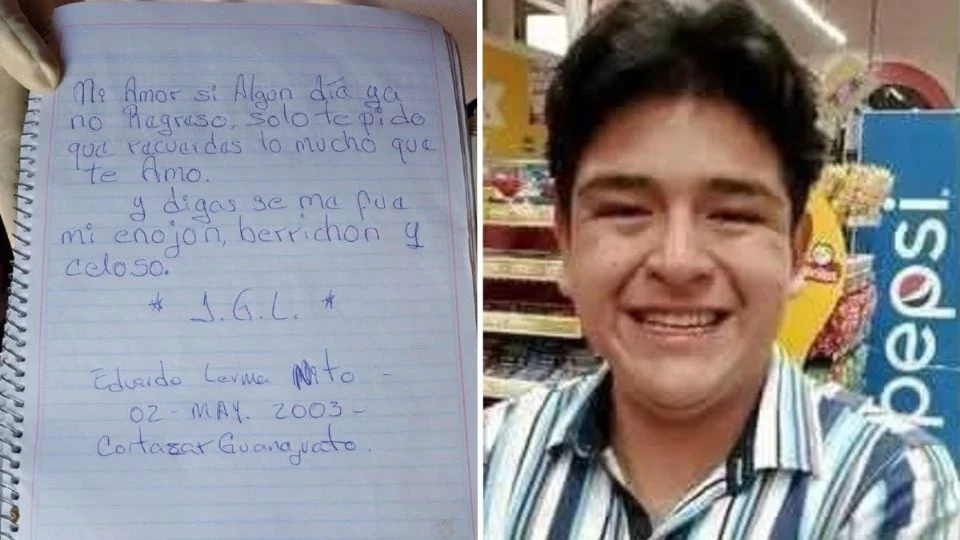 Mi Amor si Algun día ya
no Ragraso, solo te pido
que racuardas lo mucho que
te Amo.
y digas se ma fua
mi enojon, berrichon y
celoso.
* J.G.L. *
Eduardo Lerma Nito -
02 - MAY. 2003 -
Cortazar Guanajuato.
pepsi.